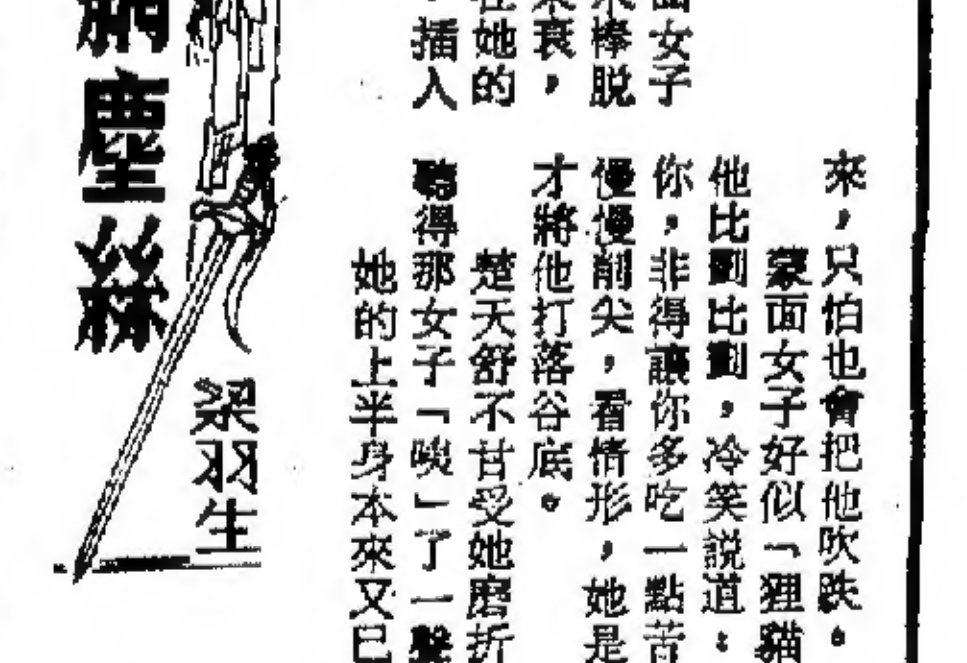 來，只怕也會把他吹跌。
蒙面女子好似「狸貓
他比劃比劃，冷笑説道：
你，非得讓你多吃一點苦
慢慢削尖，看情形，她是
才將他打落谷底。
楚天舒不甘受她磨折
聽得那女子「唉」了一聲
她的上半身本來又已
面女子
棒脱
衰，
她的
，插入
塵絲
梁羽生